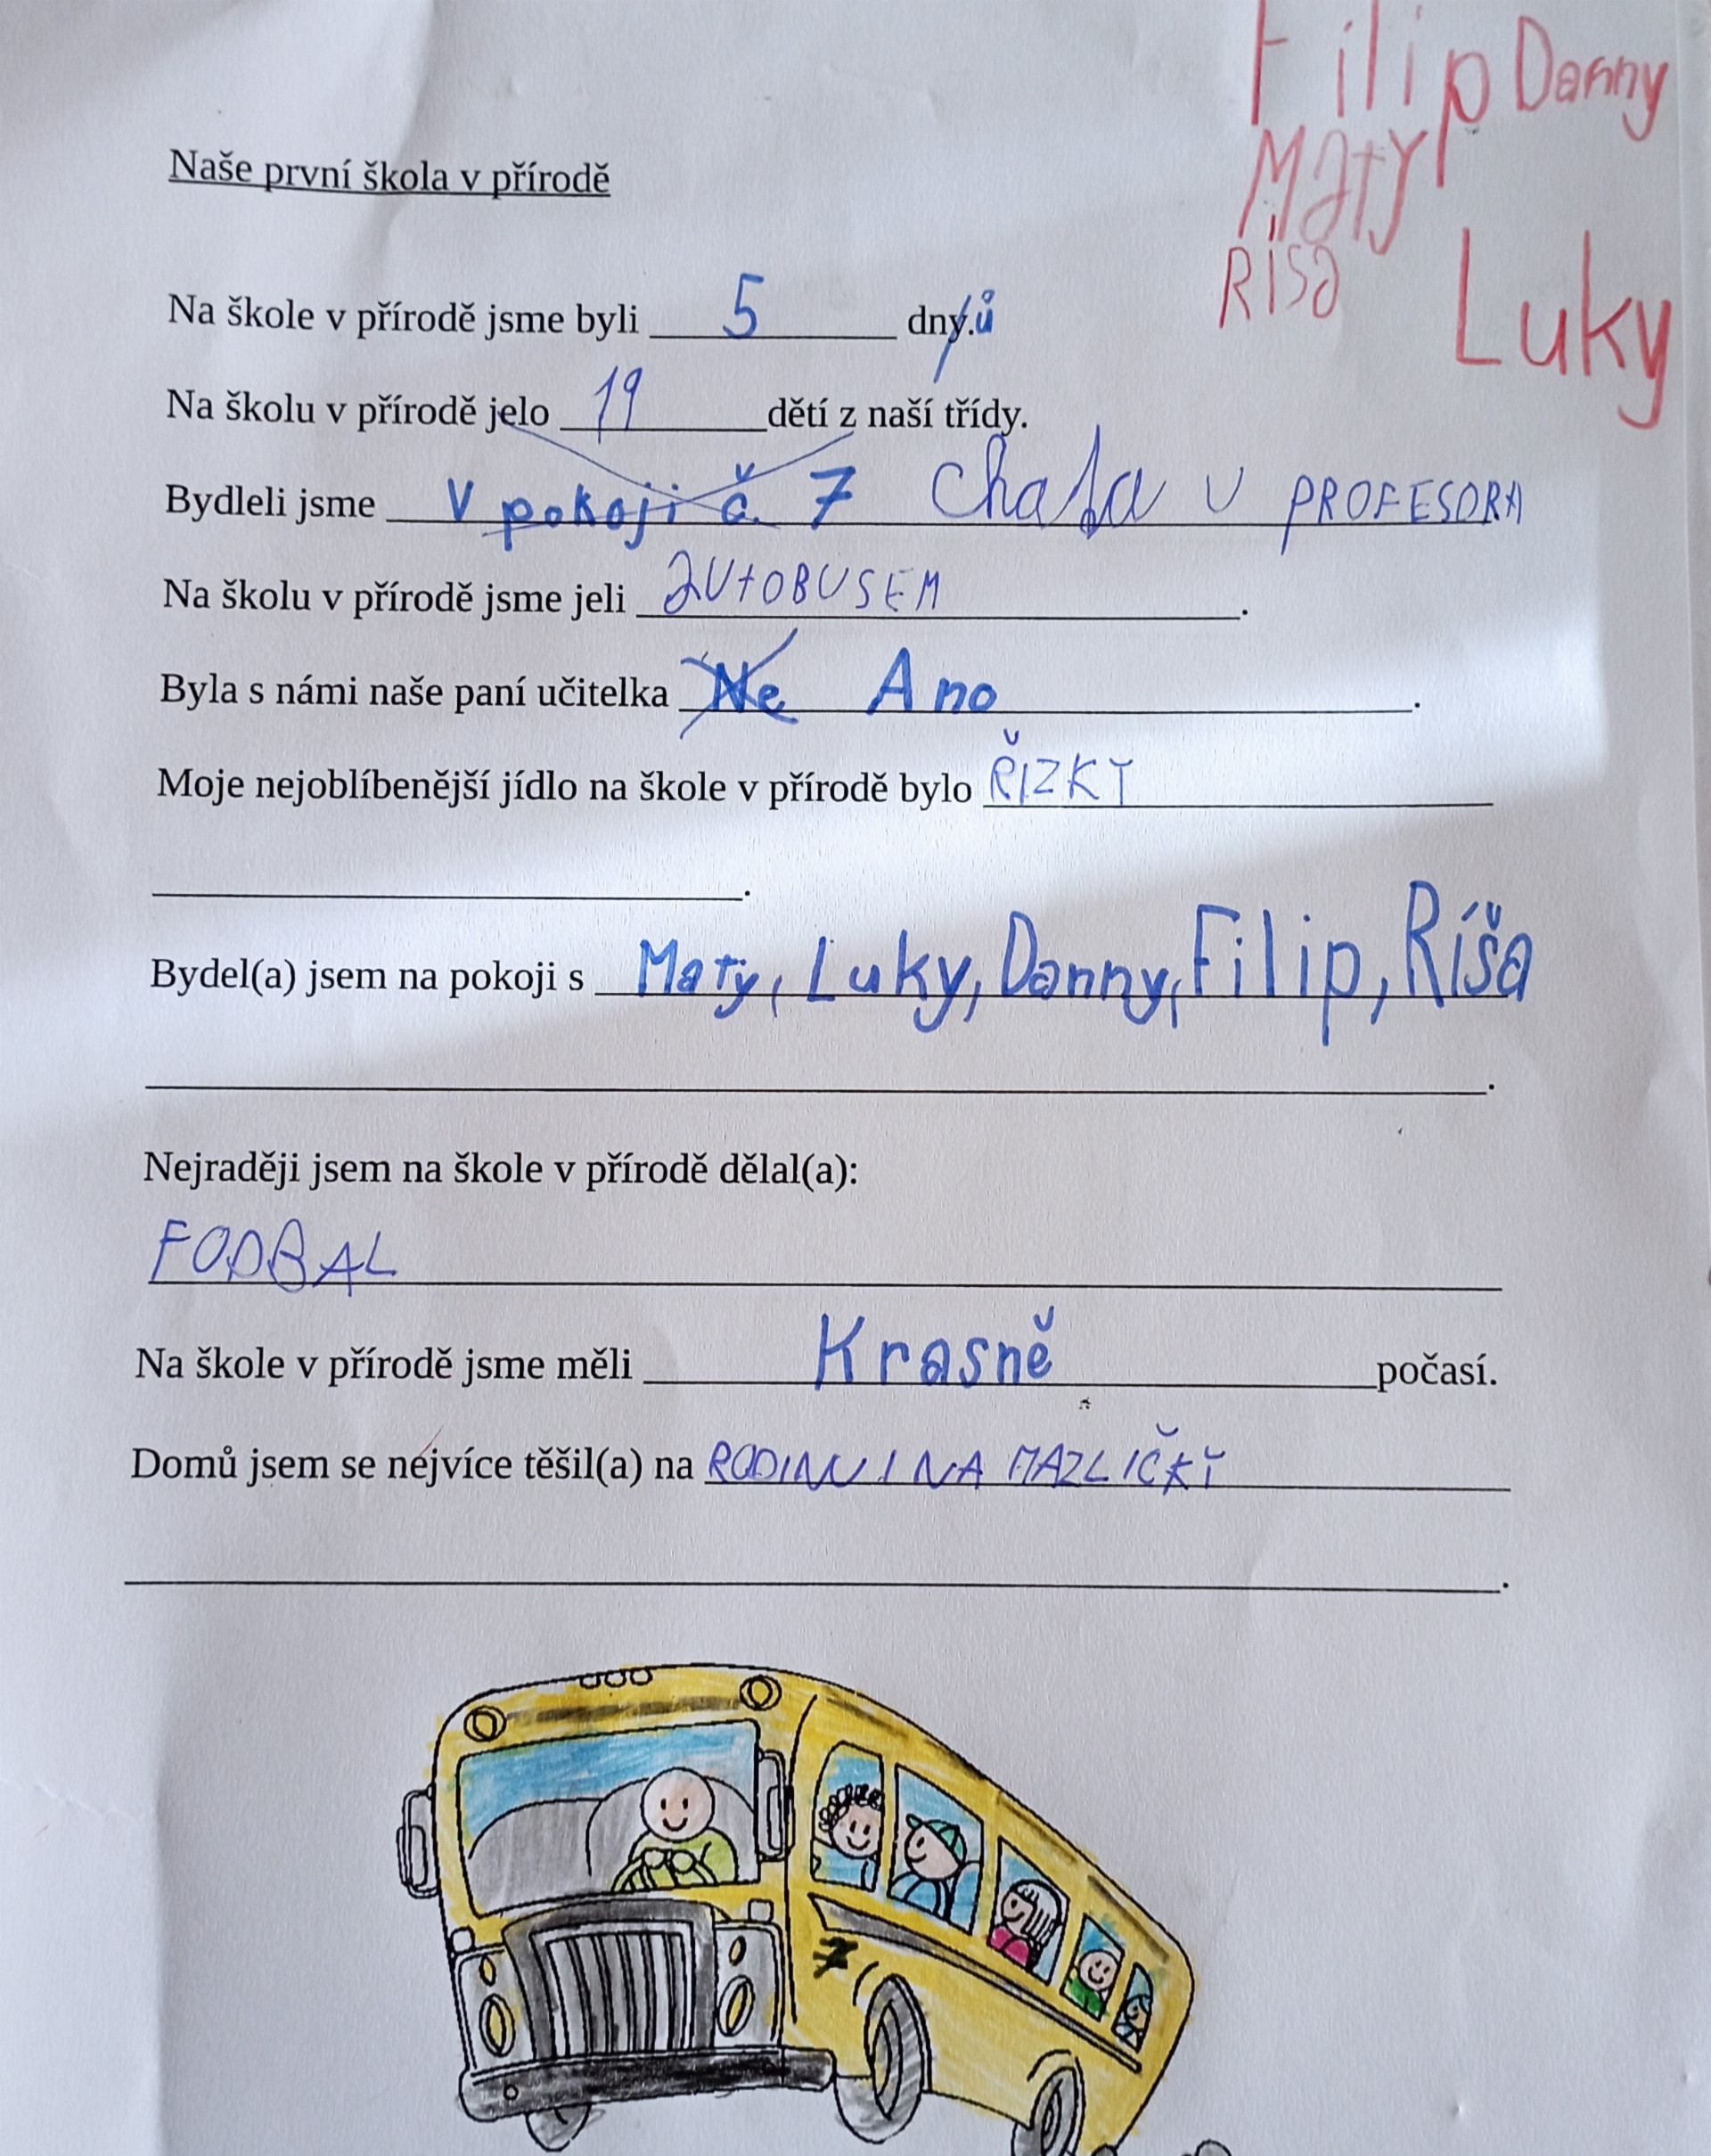 Filip Danny
Maty
Risa
Luky
Naše první škola v přírodě
Na škole v přírodě jsme byli 5 dny.ů
Na školu v přírodě jelo 19 dětí z naší třídy.
Bydleli jsme v pokoji č. 7 Chata U PROFESORA
Na školu v přírodě jsme jeli AUtOBUSEM.
Byla s námi naše paní učitelka Ne Ano.
Moje nejoblíbenější jídlo na škole v přírodě bylo ŘIZKY
.
Bydel(a) jsem na pokoji s Maty, Luky, Danny, Filip, Ríša
.
Nejraději jsem na škole v přírodě dělal(a):
FODBAL
Na škole v přírodě jsme měli Krasně počasí.
Domů jsem se nejvíce těšil(a) na RODINU I NA MAZLIČKY
.
7